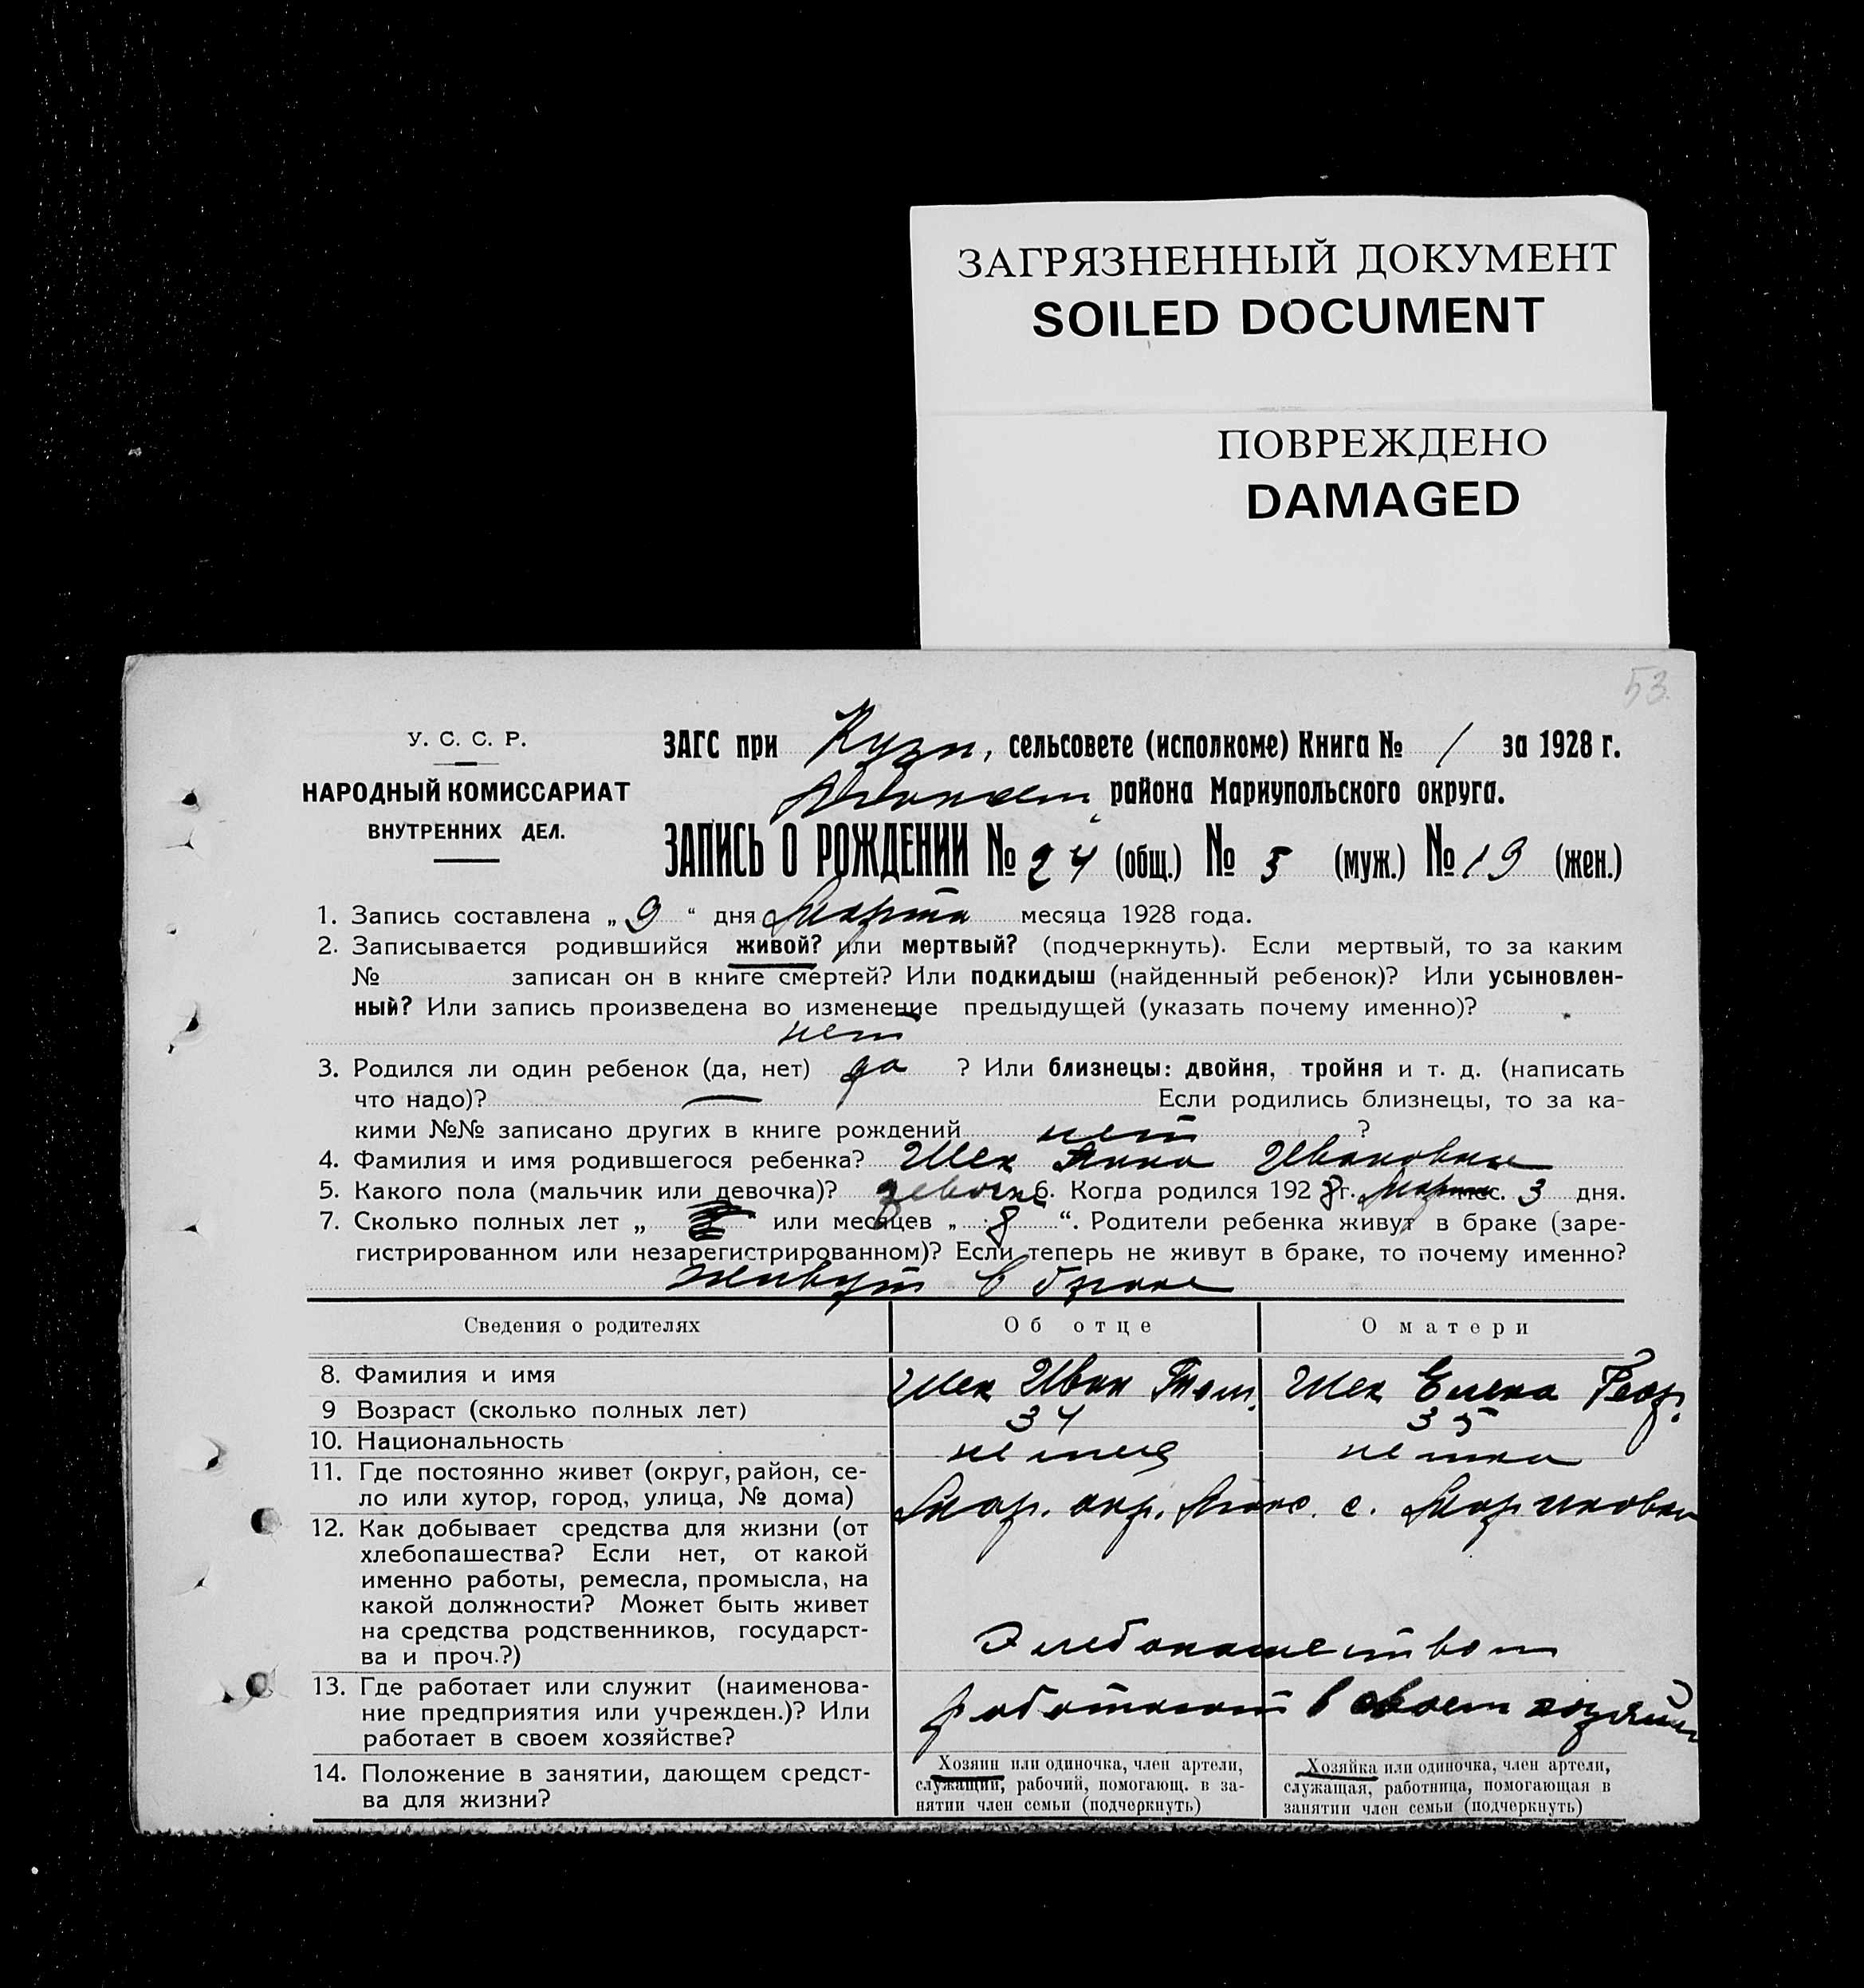 ЗАГРЯЗНЕННЫЙ ДОКУМЕНТ
SOILED DOCUMENT
ПОВРЕЖДЕНО
DAMAGED
53.
У. С. С. Р.
НАРОДНЫЙ КОМИССАРИАТ
ВНУТРЕННИХ ДЕЛ.
ЗАГС при сельсовете (исполкоме) Книга № 1 за 1928 г.
района Мариупольского округа.
ЗАПИСЬ О РОЖДЕНИИ № 24 (общ.) № 5 (муж.) № 19 (жен.)
1. Запись составлена „ 9 “ дня Марта месяца 1928 года.
2. Записывается родившийся живой? или мертвый? (подчеркнуть). Если мертвый, то за каким
№ записан он в книге смертей? Или подкидыш (найденный ребенок)? Или усыновлен-
ный? Или запись произведена во изменение предыдущей (указать почему именно)?
нет
3. Родился ли один ребенок (да, нет) да ? Или близнецы: двойня, тройня и т. д. (написать
что надо)? — Если родились близнецы, то за ка-
кими №№ записано других в книге рождений нет ?
4. Фамилия и имя родившегося ребенка? Шек Анна Ивановна
5. Какого пола (мальчик или девочка)? девочка 6. Когда родился 1928 г. Марта мес. 3 дня.
7. Сколько полных лет „ “ или месяцев „ 8 “. Родители ребенка живут в браке (заре-
гистрированном или незарегистрированном)? Если теперь не живут в браке, то почему именно?
живут в браке
Сведения о родителях Об отце О матери
8. Фамилия и имя Шек Иван Шек Елена Геор.
9 Возраст (сколько полных лет) 34 35
10. Национальность немец немка
11. Где постоянно живет (округ, район, се-
ло или хутор, город, улица, № дома) Мар. окр. с.
12. Как добывает средства для жизни (от
хлебопашества? Если нет, от какой
именно работы, ремесла, промысла, на
какой должности? Может быть живет
на средства родственников, государст-
ва и проч.?) Хлебопашеством
13. Где работает или служит (наименова-
ние предприятия или учрежден.)? Или
работает в своем хозяйстве? работают в своем хозяйс
14. Положение в занятии, дающем средст-
ва для жизни?
Хозяин или одиночка, член артели,
служащий, рабочий, помогающ. в за-
нятии член семьи (подчеркнуть)
Хозяйка или одиночка, член артели,
служащая, работница, помогающая в
занятии член семьи (подчеркнуть)